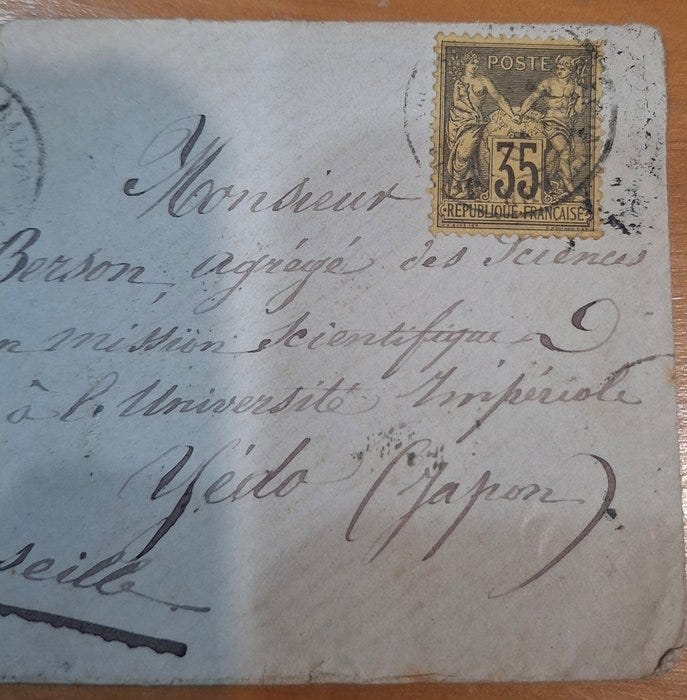 POSTE
35
RÉPUBLIQUE FRANÇAISE
Monsieur
Berson, agrégé des Sciences
n mission Scientifique
à l'Université Impériale
Yédo (Japon)
seille